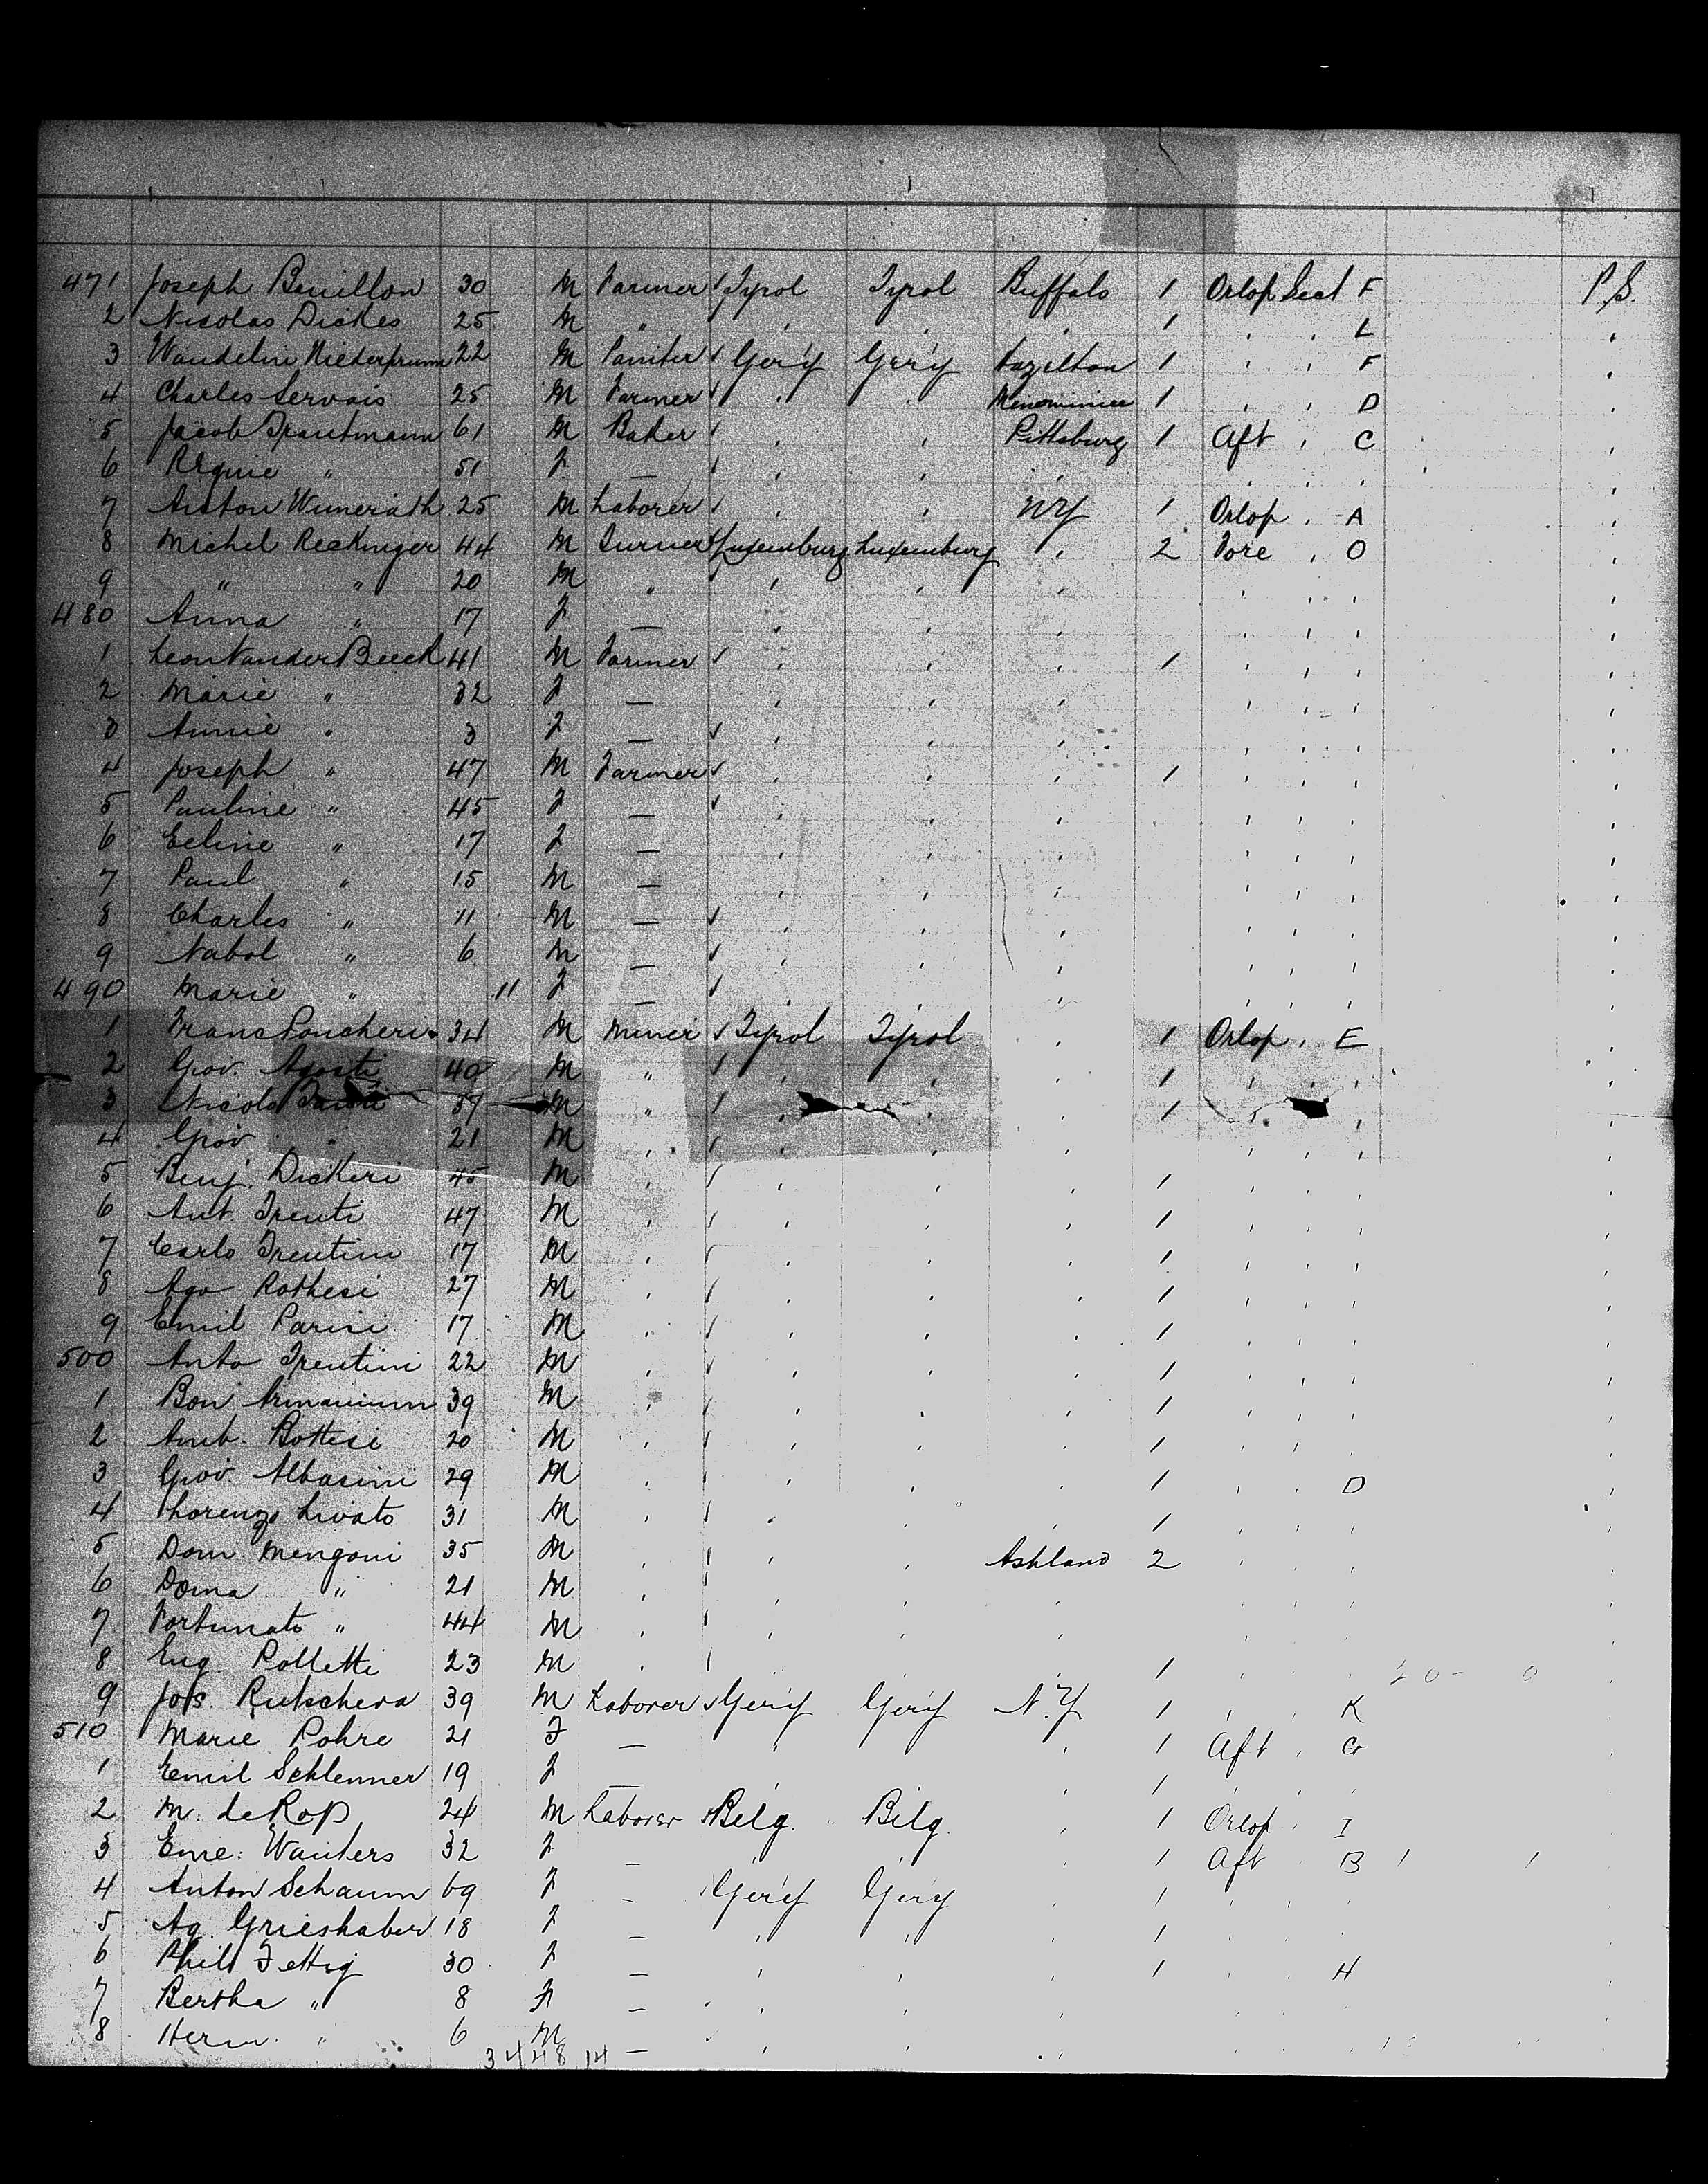 471 Joseph Bouillon 30 M Farmer Tyrol Tyrol Buffalo 1 Orlop Sect F P.S.
2 Nicolas Dickes 25 M " , , , 1 , , L ,
3 Wandelin Niederprumm 22 M Painter Ger'y Ger'y Hazelton 1 , , F ,
4 Charles Servais 25 M Farmer , , Menominee 1 , , D ,
5 Jacob Trautmann 61 M Baker , , Pittsburg 1 Aft , C ,
6 Regnie " 51 F — , , , , , , ,
7 Anton Wimerath 25 M Laborer , , NY 1 Orlop , A ,
8 Michel Reckinger 44 M Turner Luxemburg Luxemburg , 2 Fore , O ,
9 " " 20 M " , , , , , , ,
480 Anna " 17 F — , , , , , , ,
1 Leon Vander Beeck 41 M Farmer , , , 1 , , , ,
2 Marie " 32 F — , , , , , , ,
3 Annie " 3 F — , , , , , , ,
4 Joseph " 47 M Farmer , , , 1 , , , ,
5 Pauline " 45 F — , , , , , , ,
6 Eeline " 17 F — , , , , , , ,
7 Paul " 15 M — , , , , , , ,
8 Charles " 11 M — , , , , , , ,
9 Nabol " 6 M — , , , , , , ,
490 Marie " 11 F — , , , , , , ,
1 Franc Poncheri 34 M Miner Tyrol Tyrol , 1 Orlop , E ,
2 Giov. Agosti 40 M " , , , 1 , , , ,
3 Nicolo 37 M " , , , 1 , , , ,
4 Giov " 21 M , , , , , , , ,
5 Benj. Dickeri 45 M , , , , 1 , , , ,
6 Ant. Trenti 47 M , , , , 1 , , , ,
7 Carlo Trentini 17 M , , , , 1 , , , ,
8 Ago Rothesi 27 M , , , , 1 , , , ,
9 Emil Parisi 17 M , , , , 1 , , , ,
500 Anto Trentini 22 M , , , , 1 , , , ,
1 Bon 39 M , , , , 1 , , , ,
2 Amb. Bottesi 20 M , , , , 1 , , , ,
3 Giov. Albasini 29 M , , , , 1 , , D ,
4 Lhorenzo Livato 31 M , , , , 1 , , , ,
5 Dom. Mengoni 35 M , , , Ashland 2 , , , ,
6 Doma " 21 M , , , , , , , ,
7 Fortunato " 44 M , , , , , , , ,
8 Eug. Polletti 23 M , , , , 1 , , , ,
9 Jos. Rutschera 39 M Laborer Ger'y Ger'y N.Y 1 , , K ,
510 Marie Pohre 21 F — , , , 1 Aft , G ,
1 Emil Schlenner 19 F — , , , 1 , , , ,
2 M. de Rop 24 M Laborer Belg. Belg. , 1 Orlop , I ,
3 Eme. Wauters 32 F — , , , 1 Aft , B ,
4 Anton Schaum 69 F — Ger'y Ger'y , 1 , , , ,
5 Ag. Grieshaber 18 F — , , , 1 , , , ,
6 Phill Fettig 30 F — , , , 1 , , H ,
7 Bertha " 8 F — , , , , , , ,
8 Herm. " 6 M — , , , , , , ,
34 48 14